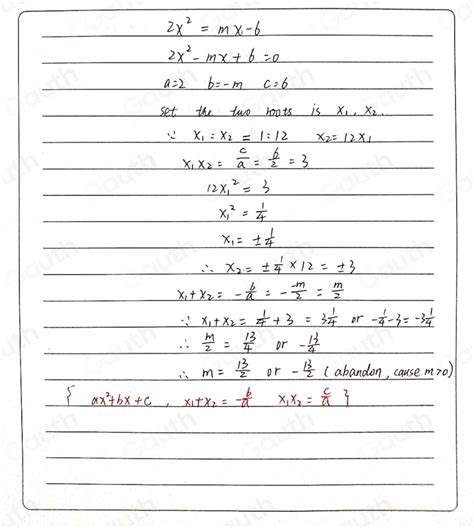 2x² = mx-6
2x²-mx+6=0
a=2 b=-m c=6
set the two roots is x₁, x₂.
∵ x₁:x₂ = 1:12 x₂=12x₁
x₁x₂ = c/a = 6/2 = 3
12x₁² = 3
x₁² = 1/4
x₁ = ±1/4
∴ x₂ = ±1/4 ×12 = ±3
x₁+x₂ = -b/a = - -m/2 = m/2
∵ x₁+x₂ = 1/4+3 = 3 1/4 or -1/4-3=-3 1/4
∴ m/2 = 13/4 or -13/4
∴ m = 13/2 or -13/2 (abandon, cause m>0)
{ ax²+bx+c , x₁+x₂ = -b/a x₁x₂ = c/a }